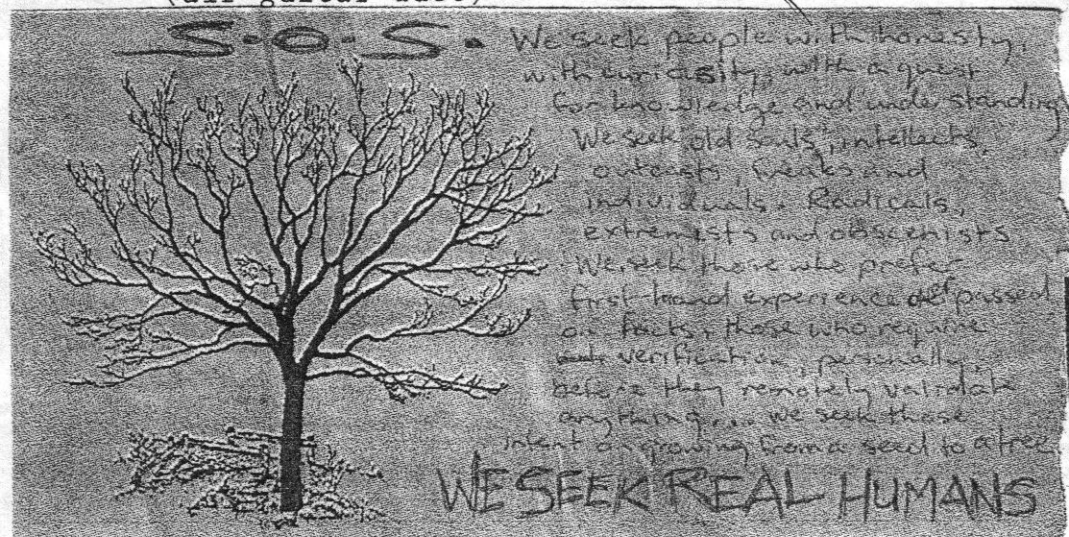 (all guitar
S.O.S.
We seek people with honesty,
with curiosity, with a quest
for knowledge and understanding
We seek old souls, intellects,
outcasts, freaks and
individuals. Radicals,
extremists and obscenists
We seek those who prefer
first-hand experience passed
on facts, those who require
verification, personally,
before they remotely validate
anything... we seek those
intent on growing from a seed to a tree
WE SEEK REAL HUMANS